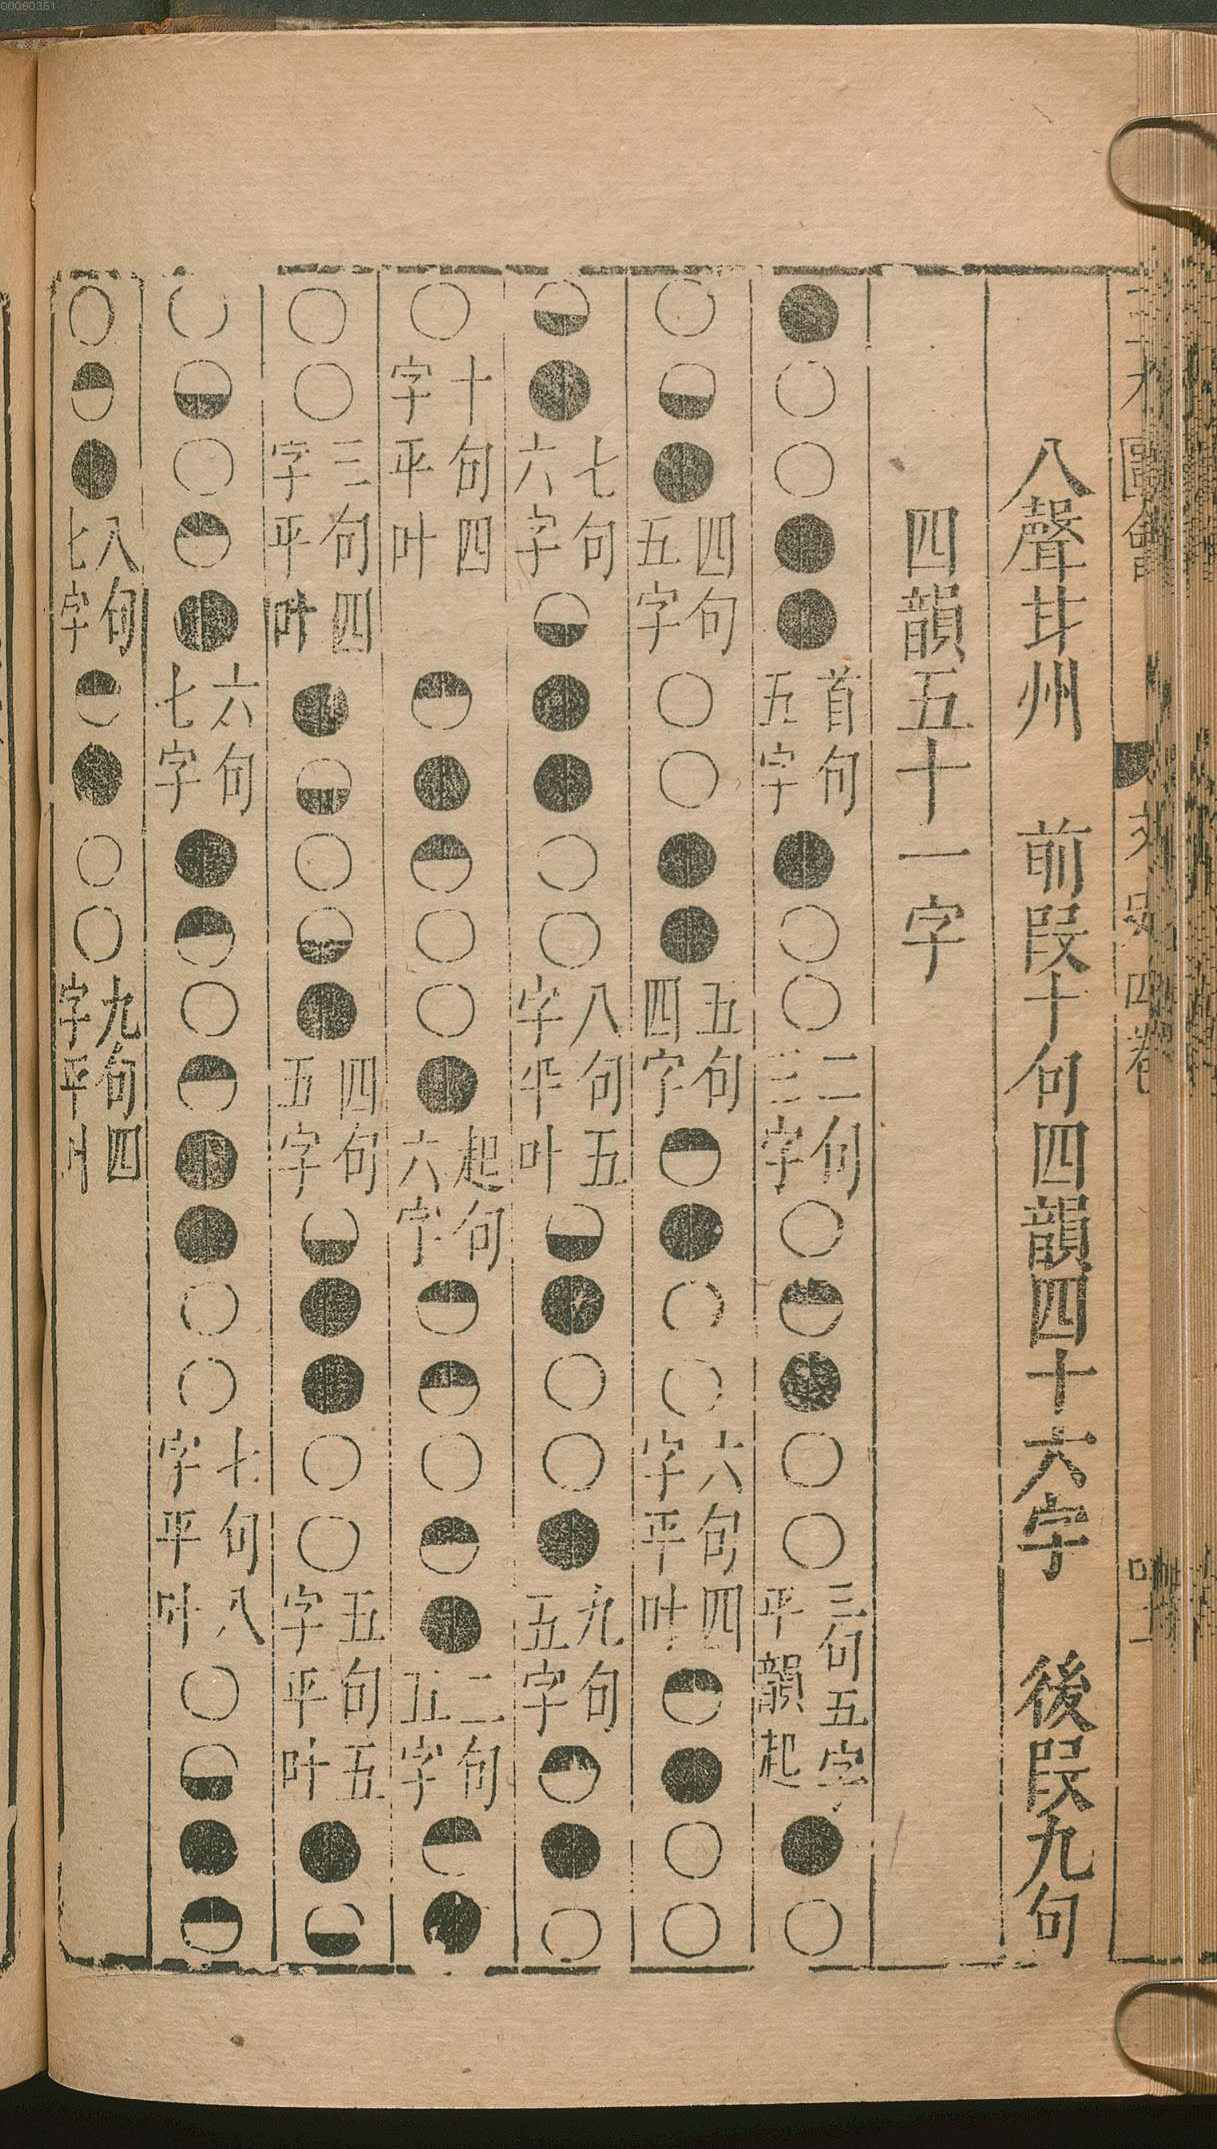 00060351
八聲甘州　前段十句四韻四十六字　後段九句
四韻五十一字
●○○●●首句五字●○○二句三字○◓●○○三句五字平韻起●○
○◒●四句五字○○●●五句四字◓●○○六句四字平叶◓●○○
◒●七句六字◒●●○○八句五字平叶◒●○○●九句五字◓●○
○十句四字平叶　◓●◓○○●起句六字◓◓○◓●二句五字◓●
○○三句四字平叶●◒○◒●四句五字◒●●○○五句五字平叶●◒
○◒○◓●六句七字●◓○◓●●○○七句八字平叶○◒●◓
○◓●八句七字◓●○○九句四字平